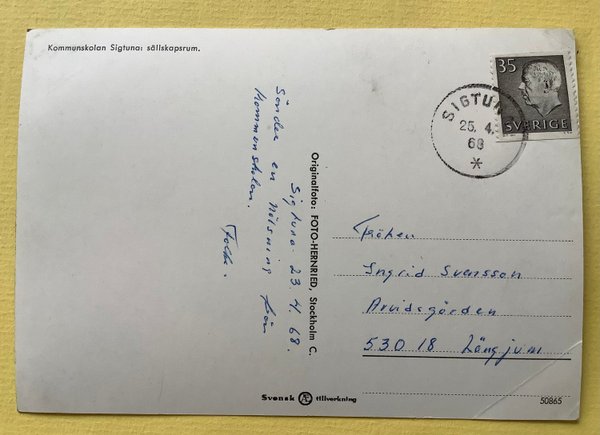 Kommunskolan Sigtuna: sällskapsrum.
35
SVERIGE
SIGTUNA
25. 4.
68
Sigtuna 23.4.68.
Sänder en hälsning från
Kommunskolan.
Originalfoto: FOTO-HERNRIED, Stockholm C.
Fröken
Ingrid Svensson
Arvidsgården
530 18 Längjum
Svensk tillverkning
50865